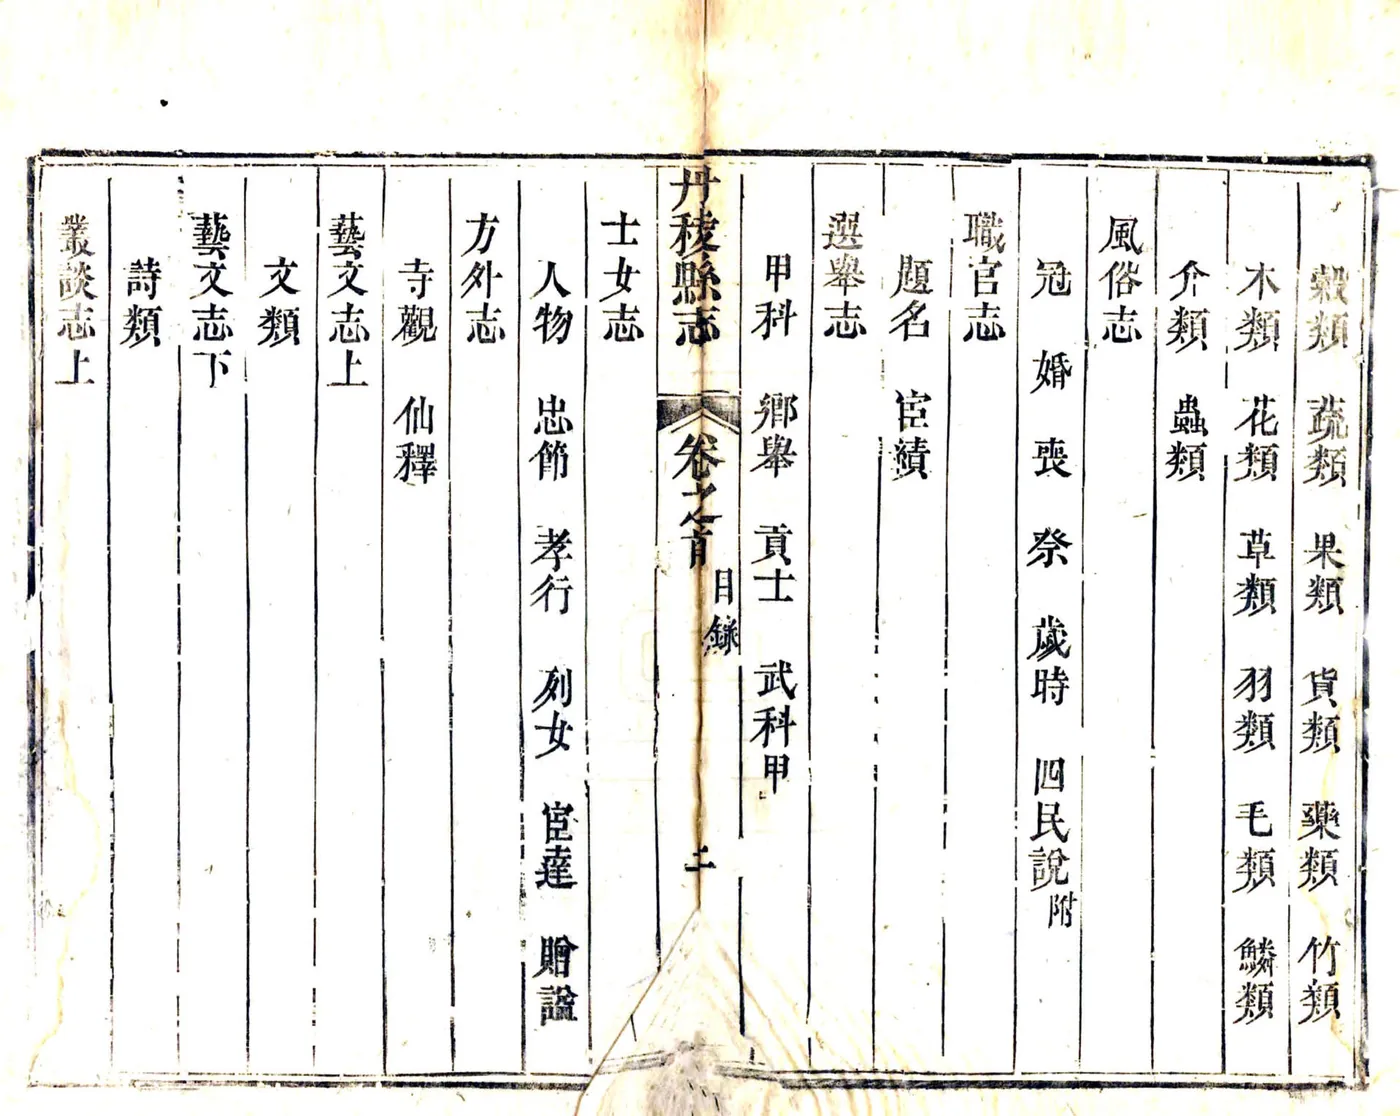 穀類　蔬類　果類　貨類　藥類　竹類
木類　花類　草類　羽類　毛類　鱗類
介類　蟲類
風俗志
冠　婚　喪　祭　歲時　四民說附
職官志
題名　宦績
選舉志
甲科　鄉舉　貢士　武科甲
丹稜縣志　卷之首　目錄　二
士女志
人物　忠節　孝行　列女　宦達　贈諡
方外志
寺觀　仙釋
藝文志上
文類
藝文志下
詩類
叢談志上